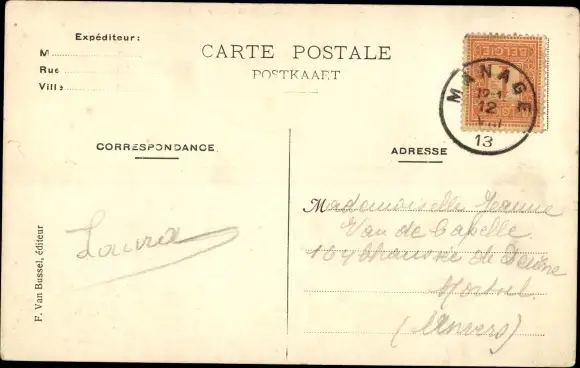 Expéditeur:
M
Rue
Ville
CARTE POSTALE
POSTKAART
BELGIE
MANAGE
12
VIII
13
CORRESPONDANCE
ADRESSE
Laura
F. Van Bussel, éditeur
Mademoiselle Jeanne
Van de Capelle
164 Chaussée de Deurne
Mortsel
(Anvers)